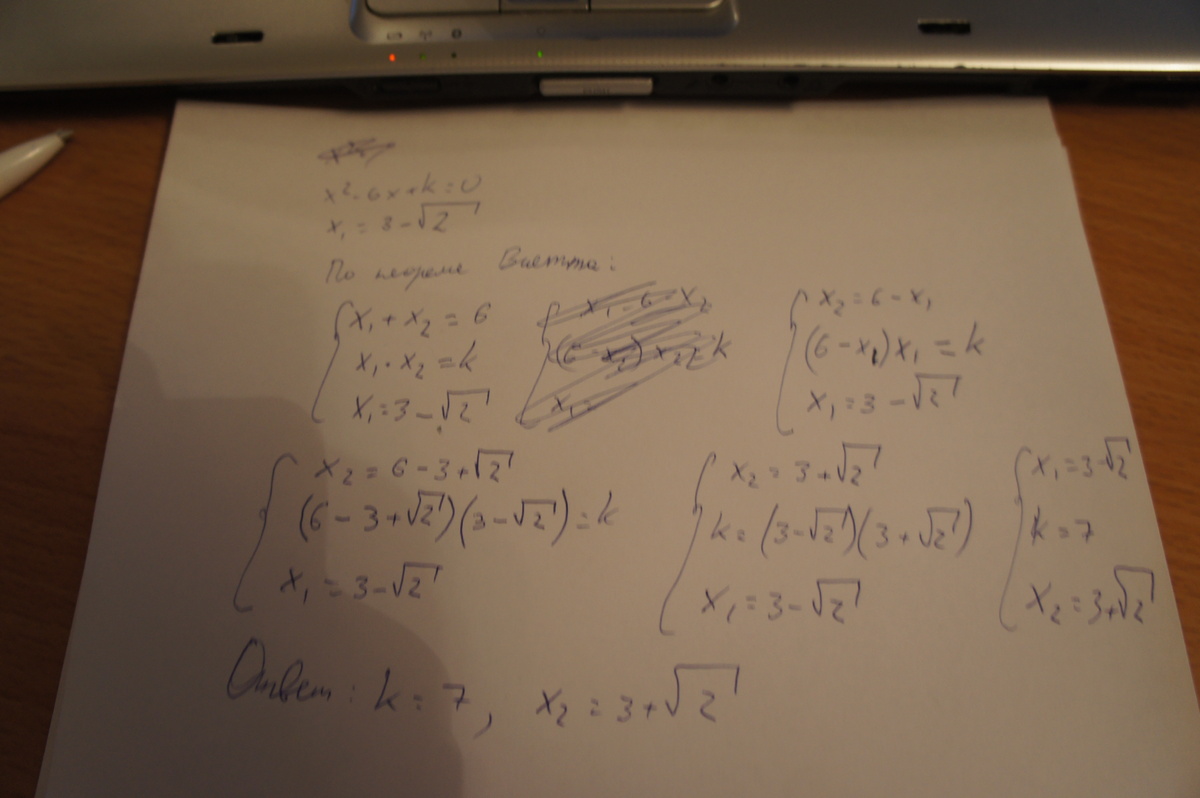 x² - 6x + k = 0
x₁ = 3 - √2
По теореме Виетта:
x₁ + x₂ = 6
x₁ · x₂ = k
x₁ = 3 - √2
x₂ = 6 - x₁
(6 - x₁) x₁ = k
x₁ = 3 - √2
x₂ = 6 - 3 + √2
(6 - 3 + √2)(3 - √2) = k
x₁ = 3 - √2
x₂ = 3 + √2
k = (3 - √2)(3 + √2)
x₁ = 3 - √2
x₁ = 3 - √2
k = 7
x₂ = 3 + √2
Ответ: k = 7, x₂ = 3 + √2